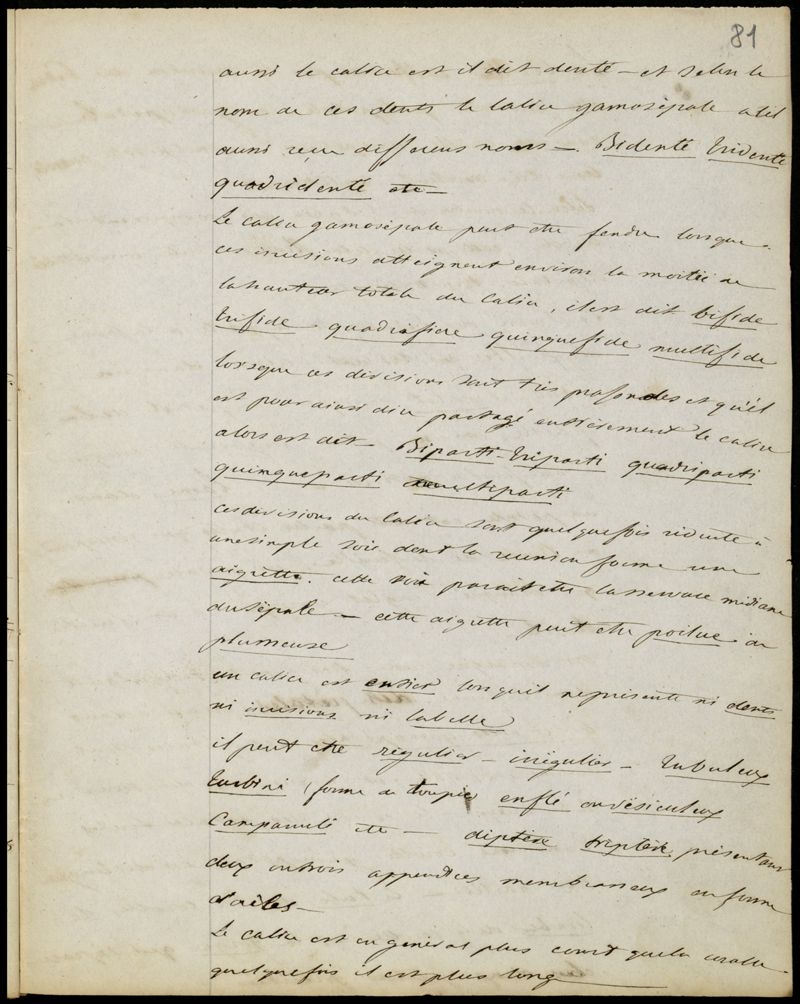 81
aussi le calice est il dit denté — et selon le
nom de ces dents le calice gamosépale a til
aussi reçu differens noms — Bidenté Tridenté
quadridenté etc —
Le calice gamosépale peut etre fendu lorsque
ces incisions atteignent environ la moitié de
la hauteur totale du calice, il est dit bifide
trifide quadrifide quinquefide multifide
lorsque ces divisions sont très profondes et qu'il
est pour ainsi dire partagé entièrement le calice
alors est dit — Biparti — Triparti quadriparti
quinqueparti multiparti
ces divisions du calice sont quelquefois réduite à
une simple soie dont la reunion forme une
aigrette. cette soie parait etre la nervure médiane
du sépale — cette aigrette peut etre poilue ou
plumeuse
un calice est entier lorsquil représente ni dents
ni incisions ni labelle
il peut etre régulier — irrégulier — Tubuleux
Turbiné (forme de toupie enflé ou vésiculeux
Campanulé etc — diptère triptère présentant
deux ou trois appendices membraneux en forme
d'ailes —
Le calice est en général plus court que la corolle
quelquefois il est plus long